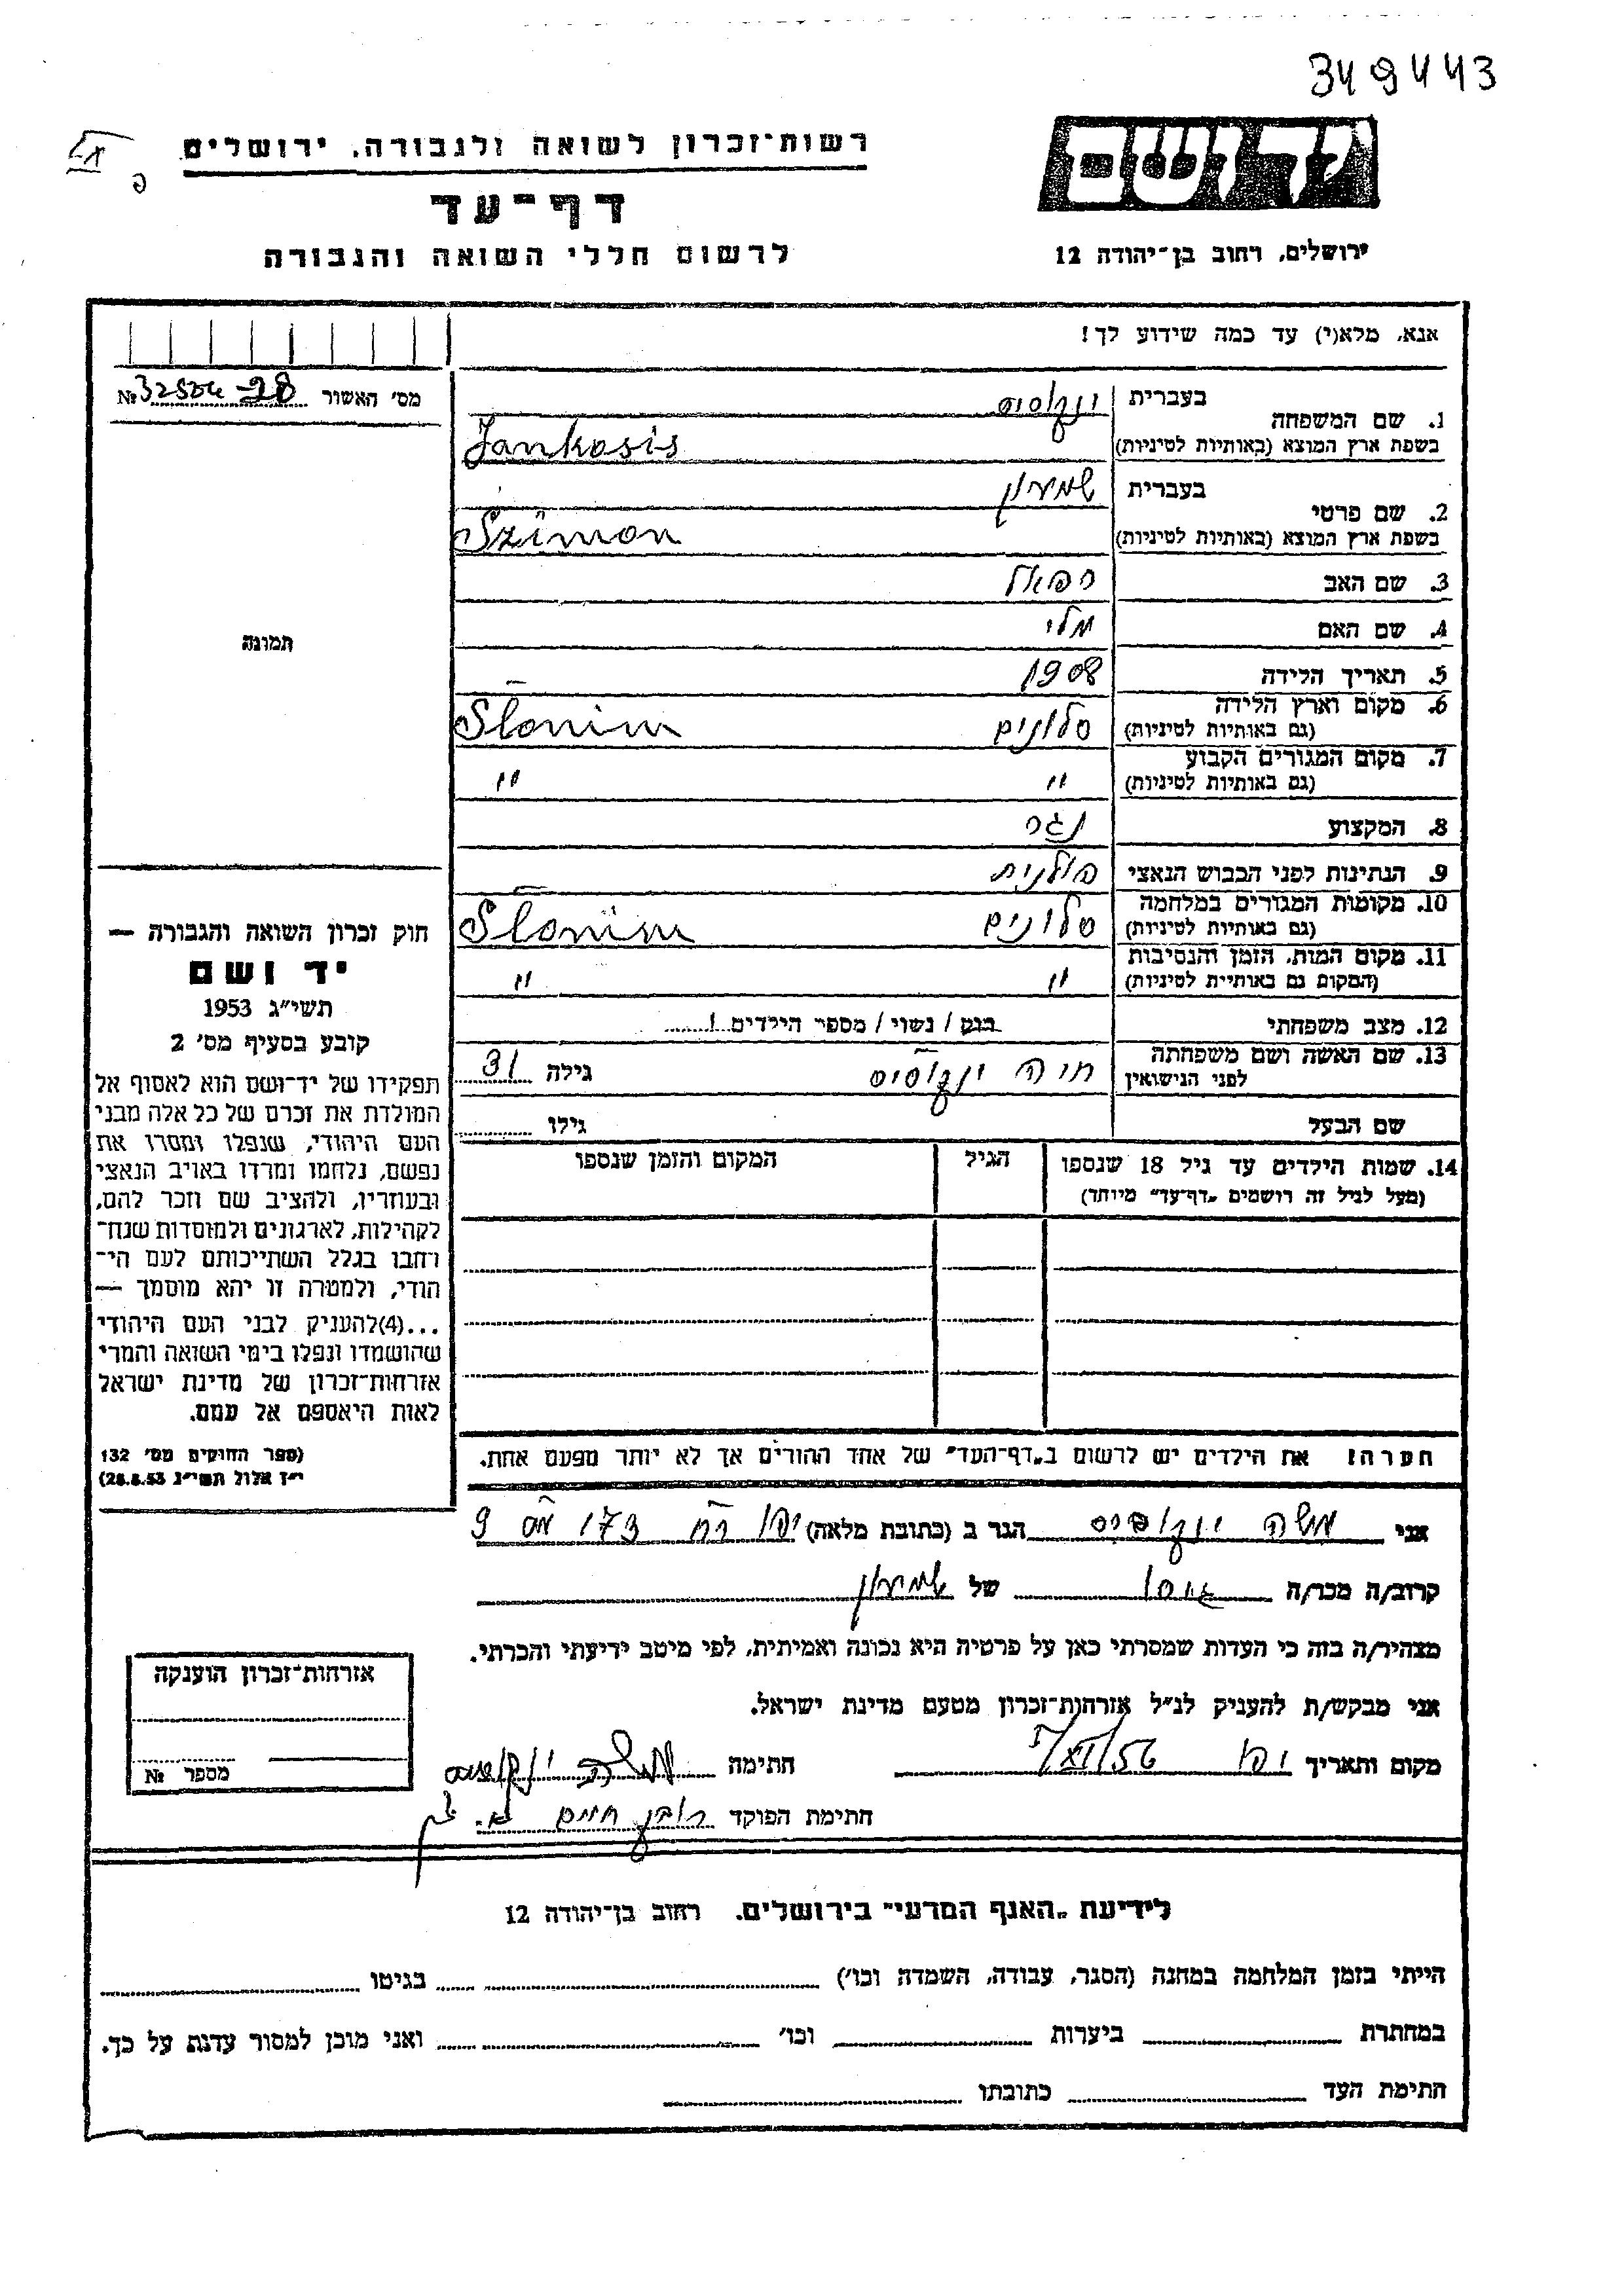 349443
רשות־זכרון לשואה ולגבורה, ירושלים
דף־עד
לרשום חללי השואה והגבורה
יד ושם
ירושלים, רחוב בן־יהודה 12
אנא, מלא(י) עד כמה שידוע לך!
מס׳ האשור №
1. שם המשפחה
בעברית ינקוסיס
בשפת ארץ המוצא (באותיות לטיניות) Jankosis
2. שם פרטי
בעברית שמעון
בשפת ארץ המוצא (באותיות לטיניות) Szimon
3. שם האב רפאל
4. שם האם
5. תאריך הלידה 1908
6. מקום וארץ הלידה סלונים Slonim
(גם באותיות לטיניות)
7. מקום המגורים הקבוע " "
(גם באותיות לטיניות)
8. המקצוע נגר
9. הנתינות לפני הכבוש הנאצי פולנית
10. מקומות המגורים במלחמה סלונים Slonim
(גם באותיות לטיניות)
11. מקום המות, הזמן והנסיבות " "
(המקום גם באותיית לטיניות)
12. מצב משפחתי רווק / נשוי / מספר הילדים 1
13. שם האשה ושם משפחתה חיה ינקוסיס גילה 31
לפני הנישואין
שם הבעל גילו
14. שמות הילדים עד גיל 18 שנספו הגיל המקום והזמן שנספו
(מעל לגיל זה רושמים „דף־עד״ מיוחד)
הערה! את הילדים יש לרשום ב„דף־העד״ של אחד ההורים אך לא יותר מפעם אחת.
תמונה
חוק זכרון השואה והגבורה —
יד ושם
תשי״ג 1953
קובע בסעיף מס׳ 2
תפקידו של יד־ושם הוא לאסוף אל
המולדת את זכרם של כל אלה מבני
העם היהודי, שנפלו ומסרו את
נפשם, נלחמו ומרדו באויב הנאצי
ובעוזריו, ולהציב שם וזכר להם,
לקהילות, לארגונים ולמוסדות שנח־
רחבו בגלל השתייכותם לעם הי־
הודי, ולמטרה זו יהא מוסמך —
...(4)להעניק לבני העם היהודי
שהושמדו ונפלו בימי השואה והמרי
אזרחות־זכרון של מדינת ישראל
לאות היאספם אל עמם.
(ספר החוקים מס׳ 132
י״ז אלול תשי״ג 28.8.53)
אני משה ינקוסיס הגר ב (כתובת מלאה) יפו רח 173 מס 9
קרוב/ה מכר/ה גיסו של שמעון
מצהיר/ה בזה כי העדות שמסרתי כאן על פרטיה היא נכונה ואמיתית, לפי מיטב ידיעתי והכרתי.
אני מבקש/ת להעניק לנ״ל אזרחות־זכרון מטעם מדינת ישראל.
מקום ותאריך יפו 5/XI/56 חתימה משה ינקוסיס
חתימת הפוקד רובין חיים
אזרחות־זכרון הוענקה
מספר №
לידיעת „האנף המדעי״ בירושלים. רחוב בן־יהודה 12
הייתי בזמן המלחמה במחנה (הסגר, עבודה, השמדה וכו׳) בגיטו
במחתרת ביערות וכו׳ ואני מוכן למסור עדות על כך.
חתימת העד כתובתו